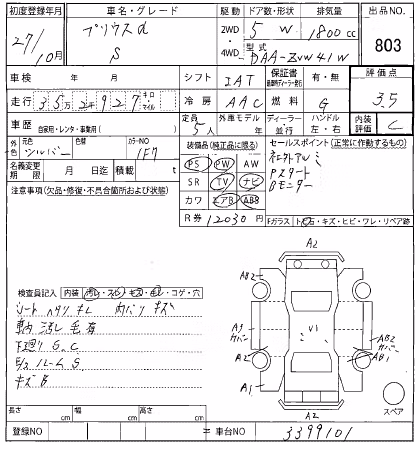 初度登録年月 車名・グレード 駆動 ドア数・形状 排気量 出品NO.
27/10月 プリウスα S 2WD・4WD 5 W 1800cc 803
型式 DAA-ZVW41W
車検 年 月 シフト IAT 保証書 有・無 評価点
走行 35万2千927 キロ マイル 冷房 AAC 燃料 G 3.5
車歴 自家用・レンタ・事業用( ) 定員 5人 外車モデル 年 ディーラー 並行 ハンドル 左・右 内装評価 C
外色 元色 シルバー 色替 カラーNO 1F7
装備品(純正品に限る) セールスポイント(正常に作動するもの)
名義変更期限 月 日迄 積載 t
PS PW AW
SR TV ナビ
カワ エアB ABS
Pスタート
Bモニター
注意事項(欠品・修復・不具合箇所および状態)
R券 12030円 Fガラス ト・石・キズ・ヒビ・ワレ・リペア跡
A2
AB2
検査員記入 内装 汚レ・スレ・キズ・・コゲ・穴
シート ヘタリ キレ 内バリ キズ
車内 汚レ 毛有
下廻り S.C
E/ルーム S
キズ
A3 カバー
A2
A1
V1
AB2 カバー
AB1
A2
スペア
長さ cm 幅 cm 高さ cm
登録NO 車台NO 3399101